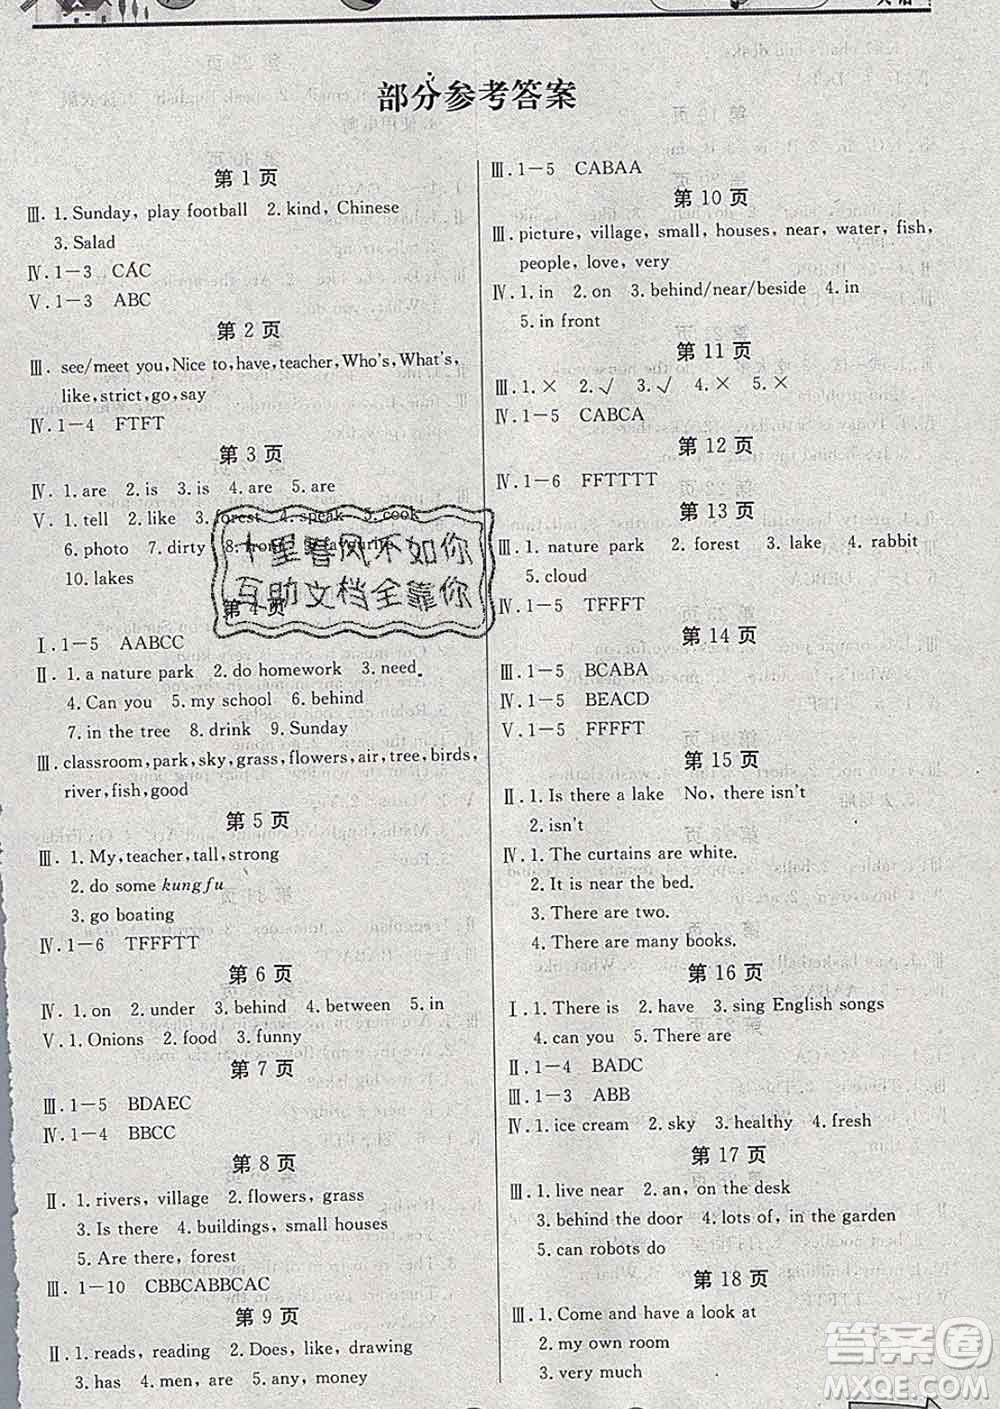 部分参考答案
第 1 页
Ⅲ. 1. Sunday, play football 2. kind, Chinese
3. Salad
Ⅳ. 1-3 CAC
Ⅴ. 1-3 ABC
第 2 页
Ⅲ. see/meet you, Nice to, have, teacher, Who's, What's,
like, strict, go, say
Ⅳ. 1-4 FTFT
第 3 页
Ⅳ. 1. are 2. is 3. is 4. are 5. are
Ⅴ. 1. tell 2. like 3. forest 4. speak 5. cook
6. photo 7. dirty 8. front
10. lakes
十里春风不如你
互助文档全靠你
第 4 页
Ⅰ. 1-5 AABCC
Ⅱ. 1. a nature park 2. do homework 3. need
4. Can you 5. my school 6. behind
7. in the tree 8. drink 9. Sunday
Ⅲ. classroom, park, sky, grass, flowers, air, tree, birds,
river, fish, good
第 5 页
Ⅲ. 1. My, teacher, tall, strong
2. do some kungfu
3. go boating
Ⅳ. 1-6 TFFFTT
第 6 页
Ⅳ. 1. on 2. under 3. behind 4. between 5. in
Ⅴ. 1. Onions 2. food 3. funny
第 7 页
Ⅲ. 1-5 BDAEC
Ⅳ. 1-4 BBCC
第 8 页
Ⅱ. 1. rivers, village 2. flowers, grass
3. Is there 4. buildings, small houses
5. Are there, forest
Ⅲ. 1-10 CBBCABBCAC
第 9 页
Ⅱ. 1. reads, reading 2. Does, like, drawing
3. has 4. men, are 5. any, money
Ⅲ. 1-5 CABAA
第 10 页
Ⅲ. picture, village, small, houses, near, water, fish,
people, love, very
Ⅳ. 1. in 2. on 3. behind/near/beside 4. in
5. in front
第 11 页
Ⅲ. 1. × 2. √ 3. √ 4. × 5. ×
Ⅳ. 1-5 CABCA
第 12 页
Ⅳ. 1-6 FFTTTT
第 13 页
Ⅲ. 1. nature park 2. forest 3. lake 4. rabbit
5. cloud
Ⅳ. 1-5 TFFFT
第 14 页
Ⅲ. 1-5 BCABA
Ⅳ. 1-5 BEACD
Ⅴ. 1-5 FFFFT
第 15 页
Ⅱ. 1. Is there a lake No, there isn't
2. isn't
Ⅳ. 1. The curtains are white.
2. It is near the bed.
3. There are two.
4. There are many books.
第 16 页
Ⅰ. 1. There is 2. have 3. sing English songs
4. can you 5. There are
Ⅱ. 1-4 BADC
Ⅲ. 1-3 ABB
Ⅳ. 1. ice cream 2. sky 3. healthy 4. fresh
第 17 页
Ⅲ. 1. live near 2. an, on the desk
3. behind the door 4. lots of, in the garden
5. can robots do
第 18 页
Ⅲ. 1. Come and have a look at
2. my own room
3. very much
答案圈
MXQE.COM